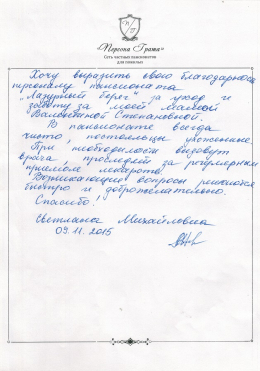 "Портал Грата"
Сеть частных пансионатов
для пожилых
Хочу выразить свою благодарность
персоналу пансионата
"Лазурный берег" за уход и
заботу за моей мамой
Валентиной Степановной.
В пансионате всегда
чисто, постояльцы ухоженные.
При необходимости вызовут
врача, проследят за регулярным
приёмом лекарств.
Возникающие вопросы решаются
быстро и доброжелательно.
Спасибо!
Светлана Михайловна
09.11.2015